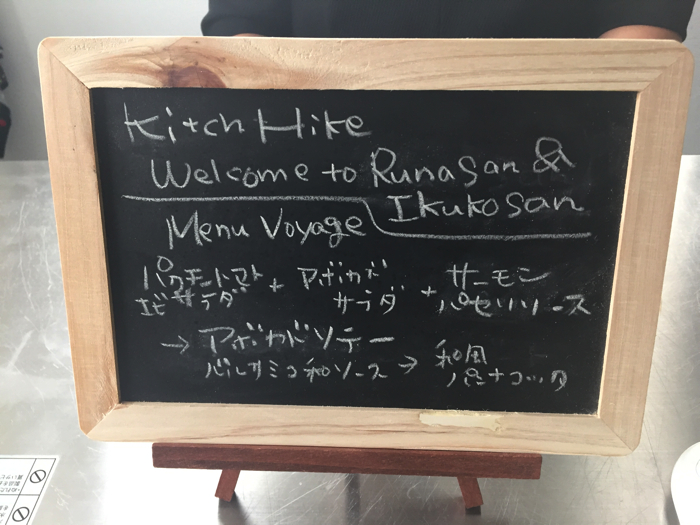 Kitch Hike
Welcome to Runasan &
Ikukosan
Menu Voyage
パクチートマト + アボカド + サーモン
エビサラダ サラダ パセリソース
→ アボカドソテー → 和風
バルサミコ和ソース パンナコッタ